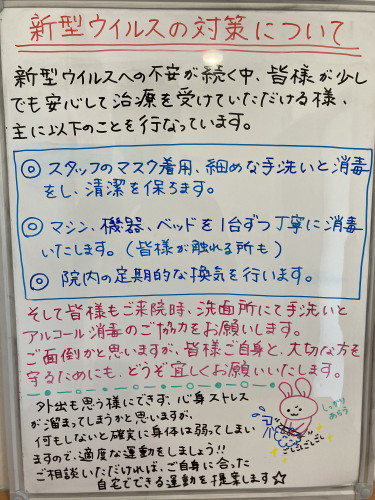 新型ウイルスの対策について
新型ウイルスへの不安が続く中、皆様が少し
でも安心して治療を受けていただける様、
主に以下のことを行なっています。
◎ スタッフのマスク着用、細めな手洗いと消毒
をし、清潔を保ちます。
◎ マシン、機器、ベッドを1台ずつ丁寧に消毒
いたします。(皆様が触れる所も)
◎ 院内の定期的な換気を行います。
そして皆様もご来院時、洗面所にて手洗いと
アルコール消毒のご協力をお願いします。
ご面倒かと思いますが、皆様ご自身と、大切な方を
守るためにも、どうぞ宜しくお願いいたします。
外出も思う様にできず、心身ストレス
が溜まってしまうかと思いますが、
何もしないと確実に身体は弱ってしまい
ますので、適度な運動をしましょう!!
ご相談いただければ、ご自身に合った
自宅でできる運動を提案します☆
しっかり
あらう
ごしごしごし